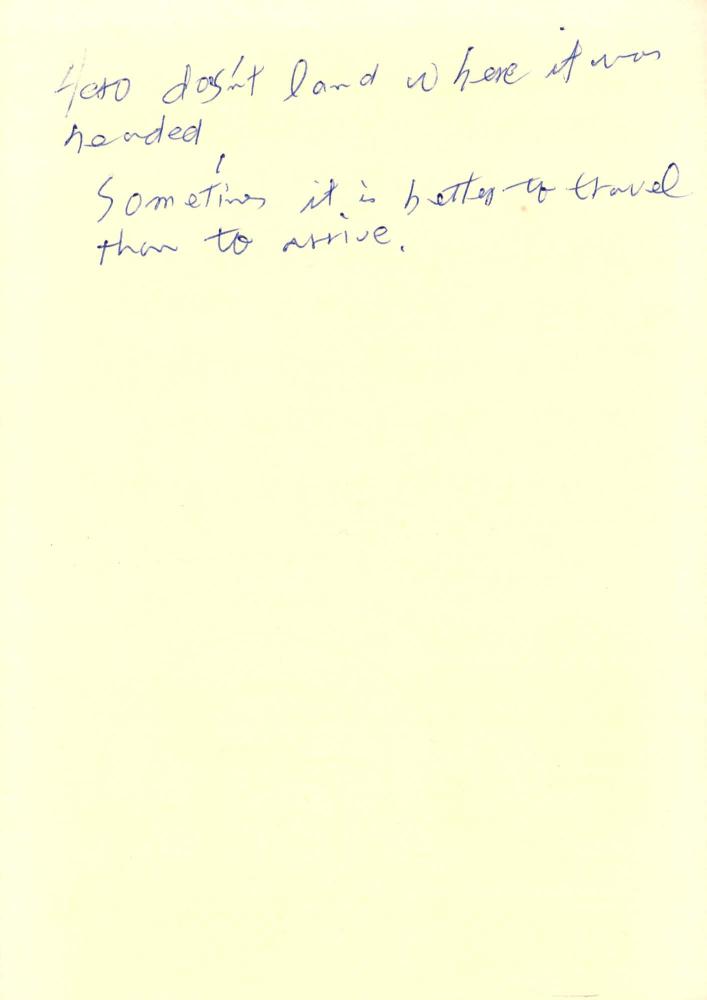 Hero doesn't land where it was
headed
Sometimes it is better to travel
than to arrive.